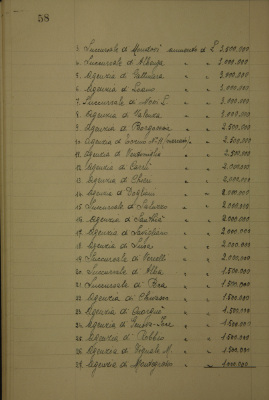 58
3 Succursale di Mondovì aumento di £ 3.500.000
4 Succursale di Albenga " " 3.000.000
5 Agenzia di Gattinara " " 3.000.000
6 Agenzia di Loano " " 3.000.000
7 Succursale di Novi L. " " 3.000.000
8 Agenzia di " " 3.000.000
9 Agenzia di Borgomanero " " 2.500.000
10 Agenzia di Torino " " 2.500.000
11 Agenzia di Ventimiglia " " 2.500.000
12 Agenzia di Carrù " " 2.000.000
13 Agenzia di Chieri " " 2.000.000
14 Agenzia di Dogliani " " 2.000.000
15 Succursale di Saluzzo " " 2.000.000
16 Agenzia di Santhià " " 2.000.000
17 Agenzia di Savigliano " " 2.000.000
18 Agenzia di " " 2.000.000
19 Succursale di Vercelli " " 2.000.000
20 Succursale di Alba " " 1.500.000
21 Succursale di Bra " " 1.500.000
22 Agenzia di Chivasso " " 1.500.000
23 Agenzia di " " 1.500.000
24 Agenzia di " " 1.500.000
25 Agenzia di Robbio " " 1.500.000
26 Agenzia di Vignale M. " " 1.500.000
27 Agenzia di " " 1.000.000